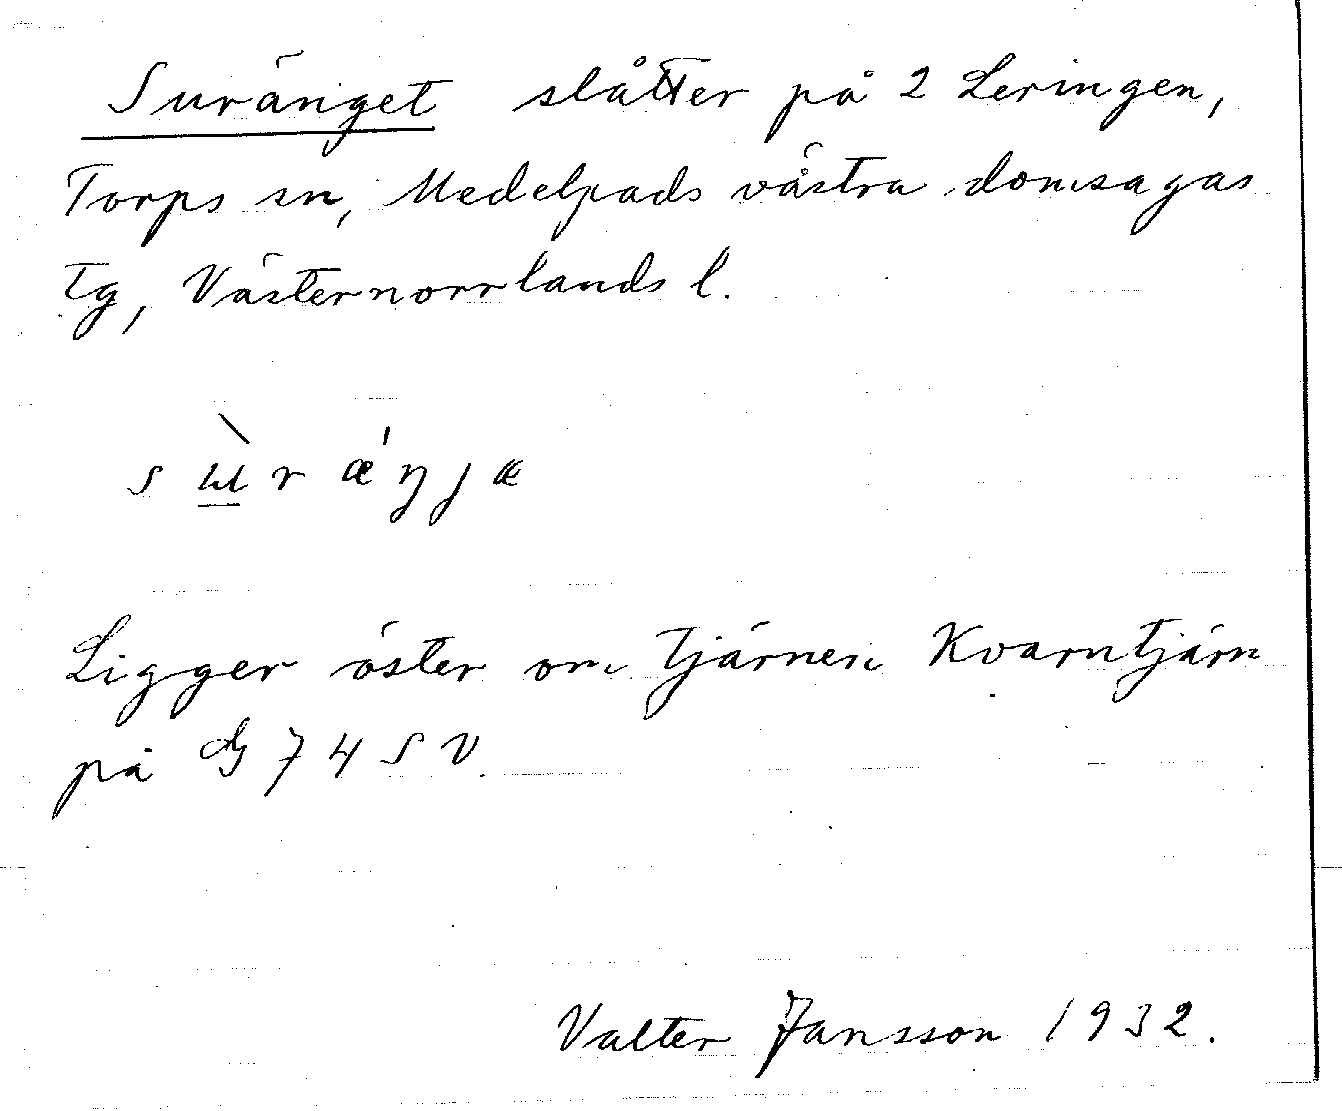 Suränget slåtter på 2 Leringen,
Torps sn, Medelpads västra domsagas
tg, Västernorrlands l.
sùrǽŋjæ
Ligger öster om tjärnen Kvarntjärn
på G 74 SV.
Valter Jansson 1932.